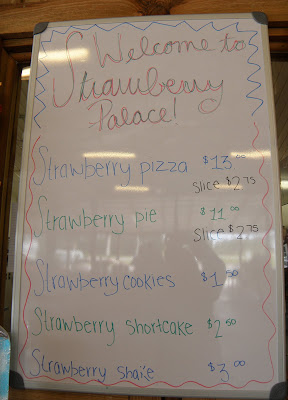 Welcome to
Strawberry
Palace!
Strawberry pizza $13.00
Slice $2.75
Strawberry pie $11.00
Slice $2.75
Strawberry cookies $1.50
Strawberry shortcake $2.50
Strawberry shake $3.00